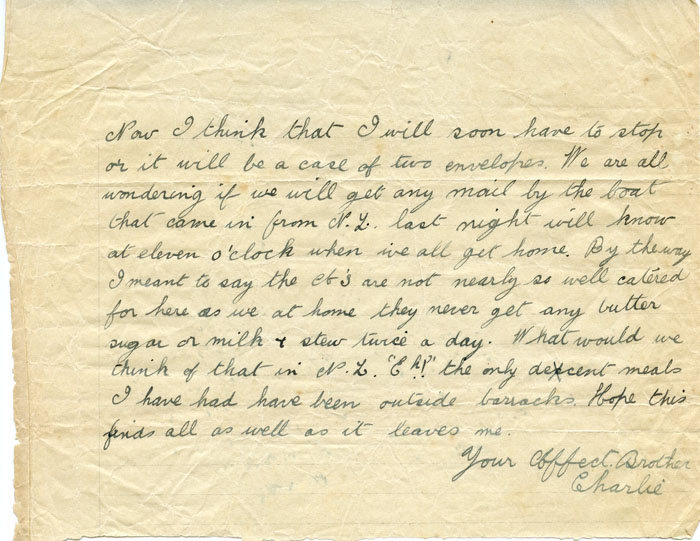 Now I think that I will soon have to stop
or it will be a case of two envelopes. We are all
wondering if we will get any mail by the boat
that came in from N.Z. last night will know
at eleven o'clock when we all get home. By the way
I meant to say the A's are not nearly so well catered
for here as we at home they never get any butter
sugar or milk & stew twice a day. What would we
think of that in N.Z. "Eh!?" the only decent meals
I have had have been outside barracks. Hope this
finds all as well as it leaves me.
Your Affect. Brother
Charlie